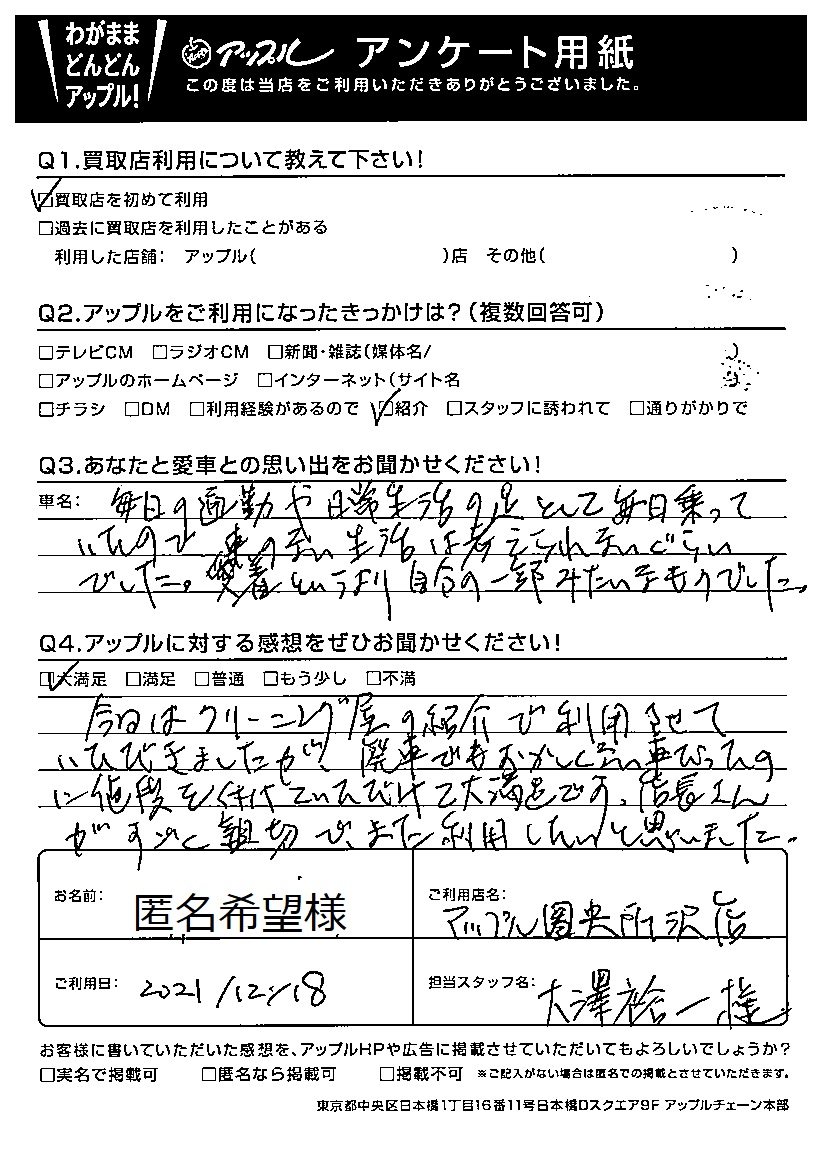 わがまま
どんどん
アップル!
アップル アンケート用紙
この度は当店をご利用いただきありがとうございました。
Q1.買取店利用について教えて下さい!
☑買取店を初めて利用
□過去に買取店を利用したことがある
利用した店舗: アップル( )店 その他( )
Q2.アップルをご利用になったきっかけは?(複数回答可)
□テレビCM □ラジオCM □新聞・雑誌(媒体名/ )
□アップルのホームページ □インターネット(サイト名 )
□チラシ □DM □利用経験があるので ☑紹介 □スタッフに誘われて □通りがかりで
Q3.あなたと愛車との思い出をお聞かせください!
車名: 毎日の通勤や日常生活の足として毎日乗って
いたので車のない生活は考えられないぐらい
でした。愛着というより自分の一部みたいなものでした。
Q4.アップルに対する感想をぜひお聞かせください!
☑大満足 □満足 □普通 □もう少し □不満
今回はクリーニング屋の紹介で利用させて
いただきましたが、廃車でもおかしくない車だったの
に値段を付けていただけて大満足です。店長さん
がすごく親切で、また利用したいと思いました。
お名前: 匿名希望様
ご利用店名: アップル圏央所沢店
ご利用日: 2021/12/18
担当スタッフ名: 大澤裕一様
お客様に書いていただいた感想を、アップルHPや広告に掲載させていただいてもよろしいでしょうか?
□実名で掲載可 □匿名なら掲載可 □掲載不可 ※ご記入がない場合は匿名での掲載とさせていただきます。
東京都中央区日本橋1丁目16番11号日本橋Dスクエア9F アップルチェーン本部